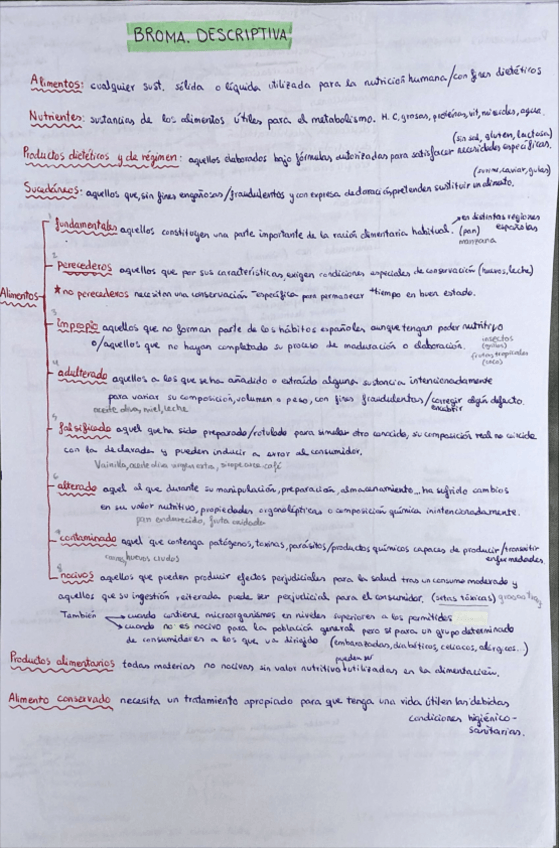 BROMA. DESCRIPTIVA
Alimentos: cualquier sust. sólida o líquida utilizada para la nutrición humana/con fines dietéticos
Nutrientes: sustancias de los alimentos útiles para el metabolismo. H.C, grasas, proteínas, vit, minerales, agua.
(sin sal, gluten, lactosa)
Productos dietéticos y de régimen: aquellos elaborados bajo fórmulas autorizadas para satisfacer necesidades específicas.
(surimi, caviar, gulas)
Sucedáneos: aquellos que, sin fines engañosos/fraudulentos y con expresa declaración pretenden sustituir un alimento.
Alimentos
1 fundamentales aquellos constituyen una parte importante de la ración alimentaria habitual. → en distintas regiones españolas
(pan)
manzana
2 perecederos aquellos que por sus características, exigen condiciones especiales de conservación (huevos, leche)
* no perecederos necesitan una conservación - específica para permanecer + tiempo en buen estado.
3 impropio aquellos que no forman parte de los hábitos españoles aunque tengan poder nutritivo
o/aquellos que no hayan completado su proceso de maduración o elaboración.
insectos
(grillos)
frutas tropicales
(coco)
4 adulterado aquellos a los que se ha añadido o extraído alguna sustancia intencionadamente
para variar su composición, volumen o peso, con fines fraudulentos/corregir algún defecto.
encubrir
aceite oliva, miel, leche
5 falsificado aquel que ha sido preparado/rotulado para simular otro conocido, su composición real no coincide
con la declarada y pueden inducir a error al consumidor.
Vainilla, aceite oliva virgen extra, sirope arce, café
6 alterado aquel al que durante su manipulación, preparación, almacenamiento... ha sufrido cambios
en su valor nutritivo, propiedades organolépticas o composición química inintencionadamente.
pan endurecido, fruta oxidada
7 contaminado aquel que contenga patógenos, toxinas, parásitos/productos químicos capaces de producir/transmitir
enfermedades.
carne, huevos crudos
8 nocivos aquellos que pueden producir efectos perjudiciales para la salud tras un consumo moderado y
aquellos que su ingestión reiterada puede ser perjudicial para el consumidor. (setas tóxicas) grasas
También → cuando contiene microorganismos en niveles superiores a los permitidos
→ cuando no es nocivo para la población general pero sí para un grupo determinado
de consumidores a los que va dirigido (embarazadas, diabéticos, celíacos, alérgicos...)
pueden ser
Productos alimentarios todas materias no nocivas sin valor nutritivo utilizadas en la alimentación.
Alimento conservado necesita un tratamiento apropiado para que tenga una vida útil en las debidas
condiciones higiénico-
sanitarias.